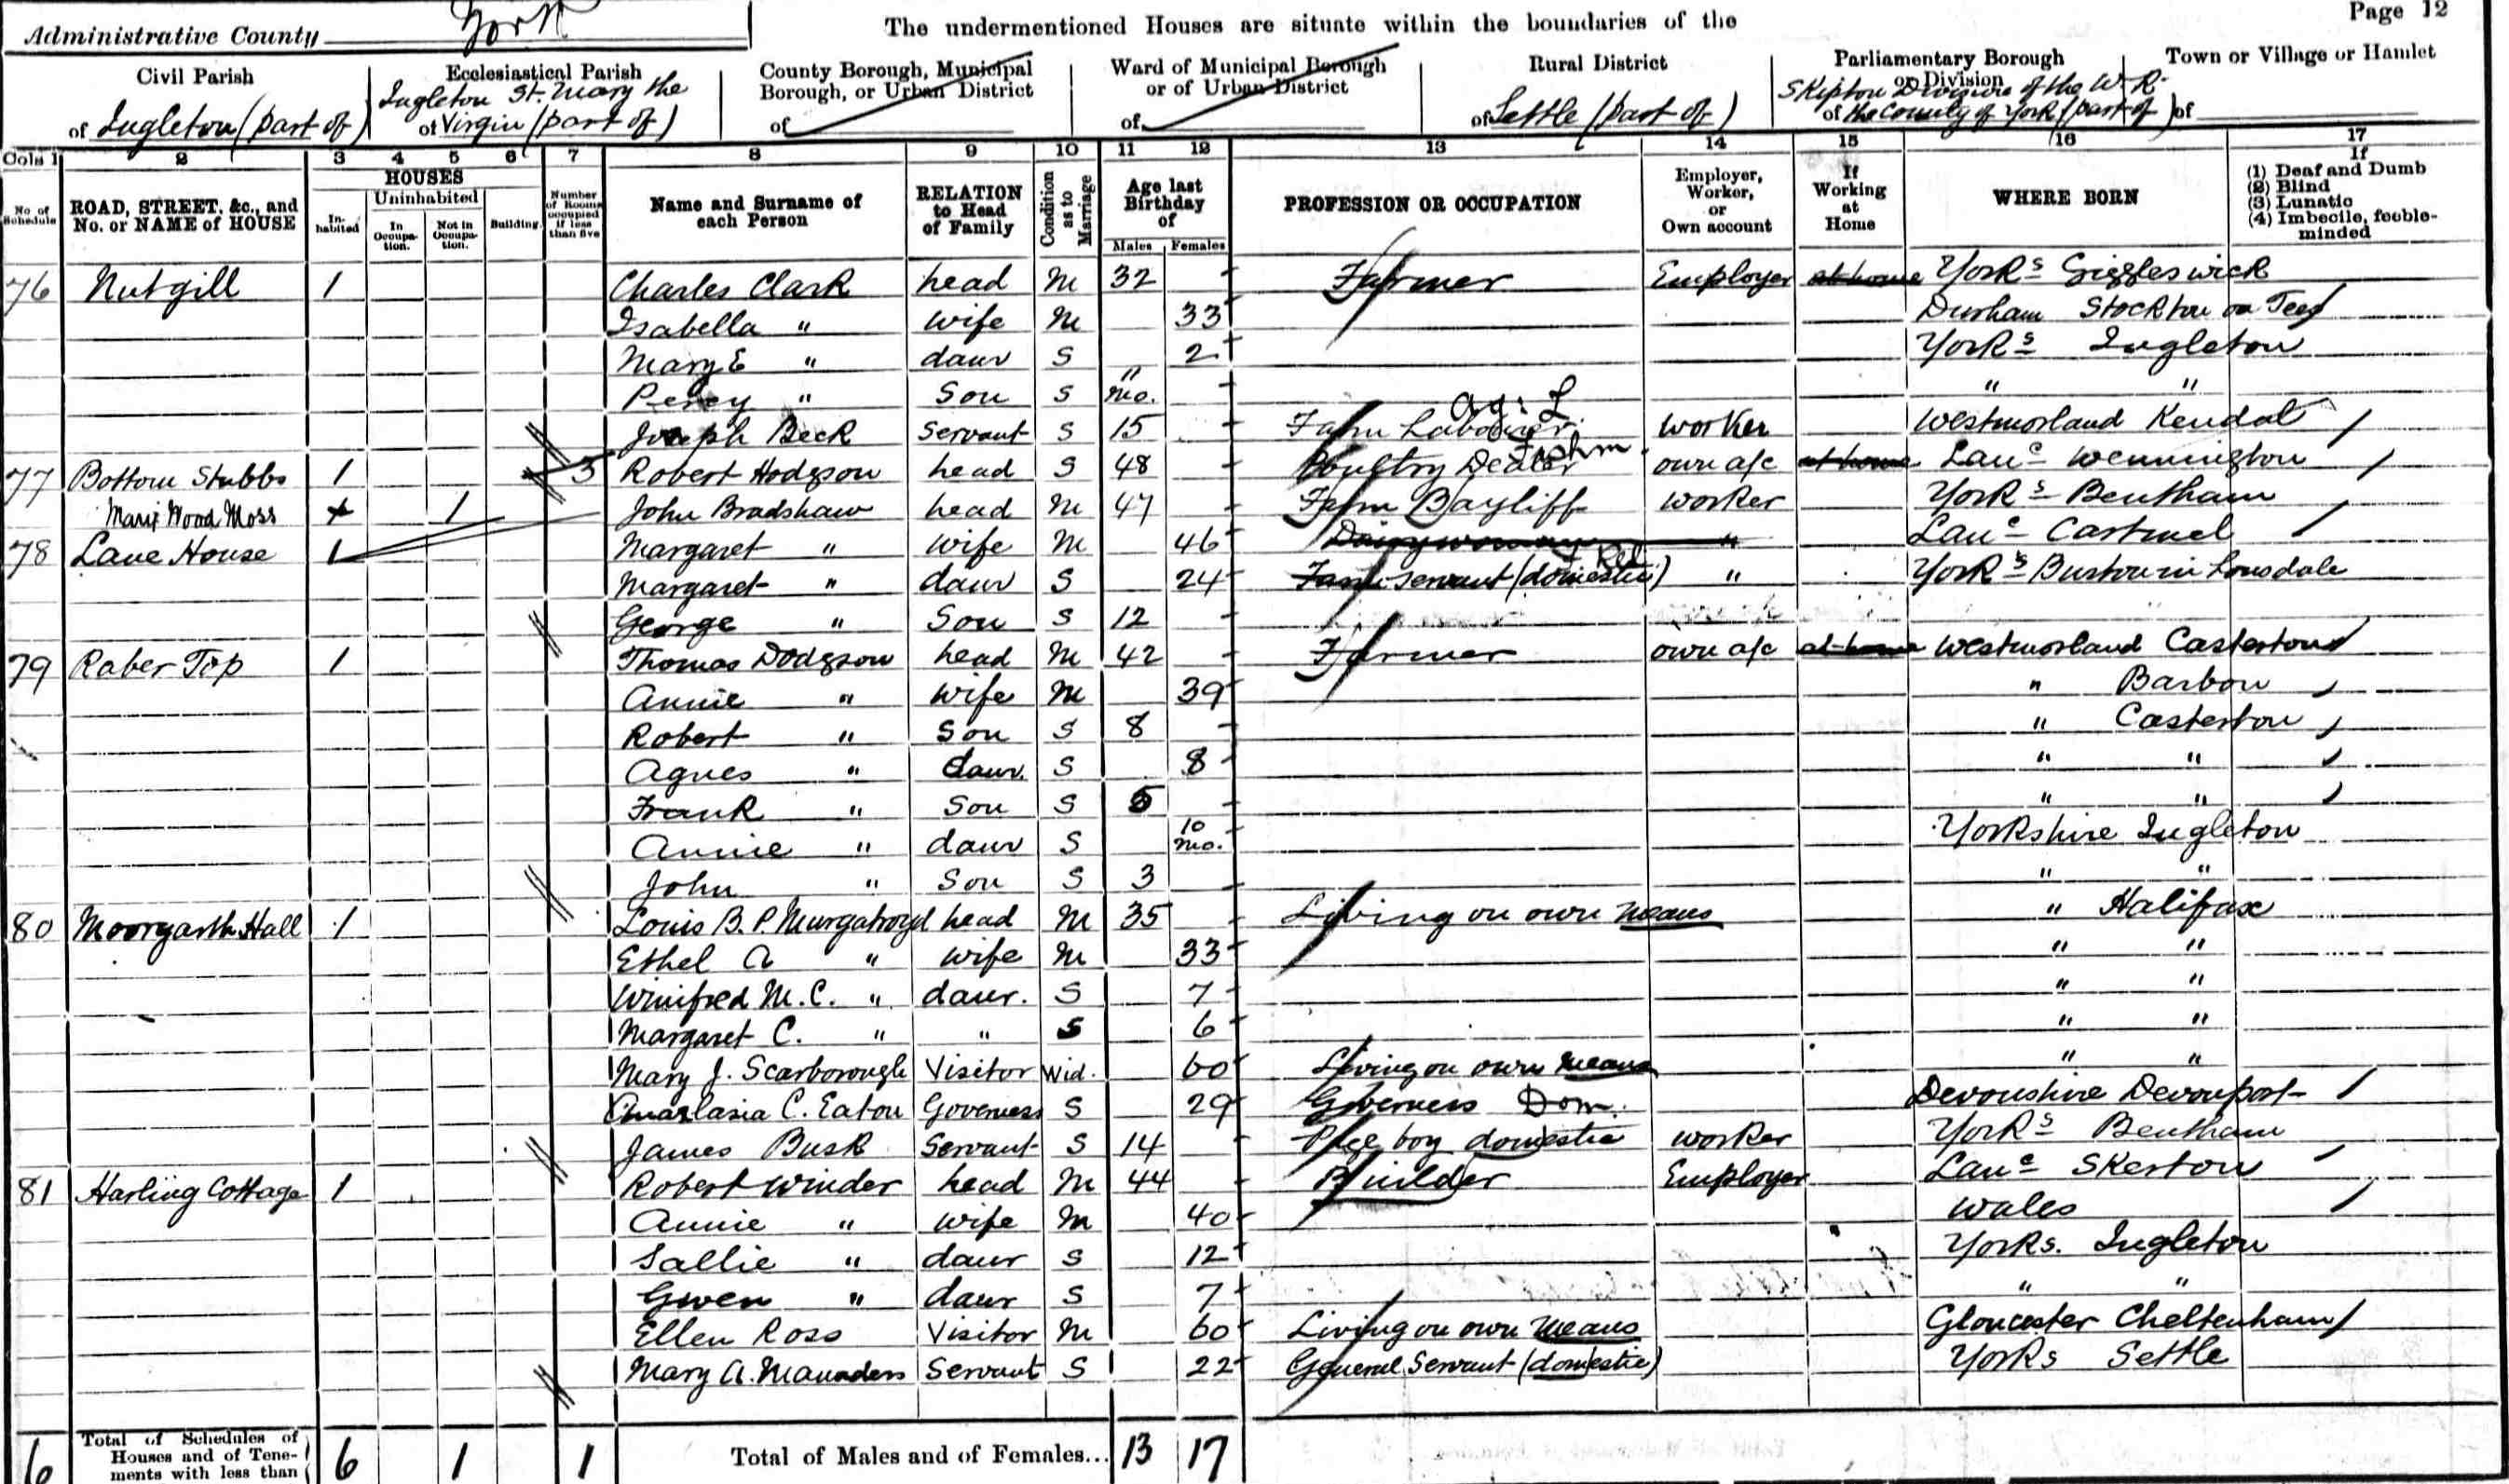 Page 12
Administrative County York The undermentioned Houses are situate within the boundaries of the
Civil Parish Ecclesiastical Parish County Borough, Municipal Borough, or Urban District Ward of Municipal Borough or of Urban District Rural District Parliamentary Borough or Division Town or Village or Hamlet
of Ingleton (part of) Ingleton St. Mary the of Virgin (part of) of of of Settle (part of) Skipton Division of the W.R. of the County of York (part of) of
Cols 1 2 3 4 5 6 7 8 9 10 11 12 13 14 15 16 17
No. of Schedule ROAD, STREET, &c., and No. or NAME of HOUSE HOUSES Inhabited Uninhabited In Occupation. Not in Occupation. Building Number of Rooms occupied if less than five Name and Surname of each Person RELATION to Head of Family Condition as to Marriage Age last Birthday of Males Females PROFESSION OR OCCUPATION Employer, Worker, or Own account If Working at Home WHERE BORN If (1) Deaf and Dumb (2) Blind (3) Lunatic (4) Imbecile, feeble-minded
76 Nutgill 1 Charles Clark head M 32 Farmer Employer at home Yorks Giggleswick
Isabella " wife M 33 Durham Stockton on Tees
Mary E " daur S 2 Yorks Ingleton
Percy " Son S 11 mo. " "
Joseph Beck Servant S 15 Farm Labourer Ag: L worker Westmorland Kendal
77 Bottom Stubbs 1 3 Robert Hodgson head S 48 Poultry Dealer own a/c at home Lanc Wennington
Wood Moss 1 John Bradshaw head M 47 Farm Bayliff worker Yorks Bentham
78 Lane House 1 Margaret " wife M 46 Dairywoman " Lanc Cartmel
Margaret " daur S 24 Farm servant (domestic) " Yorks Burton in Lonsdale
George " Son S 12
79 Raber Top 1 Thomas Dodgson head M 42 Farmer own a/c at home Westmorland Casterton
Annie " wife M 39 " Barbon
Robert " Son S 8 " Casterton
Agnes " daur. S 8 " "
Frank " Son S 5 " "
Annie " daur S 10 mo. Yorkshire Ingleton
John " Son S 3 " "
80 Moorgarth Hall 1 Louis B. P. Murgatroyd head M 35 Living on own means " Halifax
Ethel A " wife M 33 " "
Winifred M. C. " daur. S 7 " "
Margaret C. " " S 6 " "
Mary J. Scarborough Visitor Wid. 60 Living on own means " "
C. Eaton Governess S 29 Governess Dom. Devonshire Devonport
James Busk Servant S 14 Page boy domestic worker Yorks Bentham
81 Harling Cottage 1 Robert Winder head M 44 Builder Employer Lanc Skerton
Annie " wife M 40 Wales
Sallie " daur S 12 Yorks. Ingleton
Gwen " daur S 7 " "
Ellen Ross Visitor M 60 Living on own means Gloucester Cheltenham
Mary A. Maunders Servant S 22 General Servant (domestic) Yorks Settle
6 Total of Schedules of Houses and of Tenements with less than 6 1 1 Total of Males and of Females... 13 17